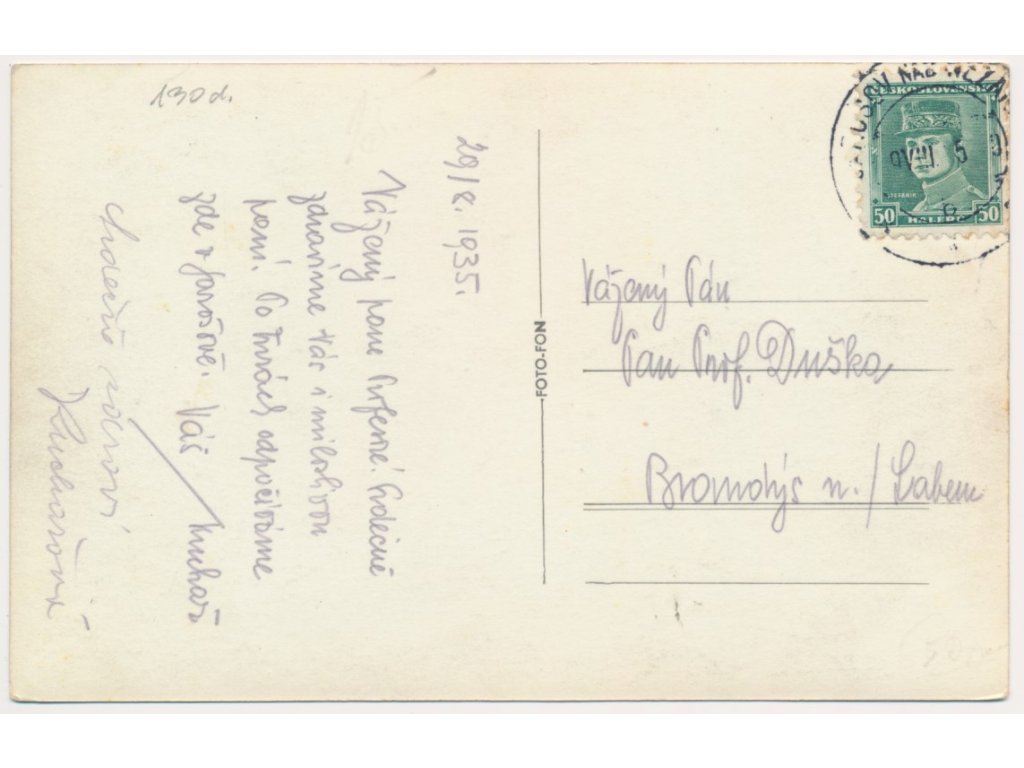 130d.
29/8. 1935.
Vážený pane Profesore! Srdečně
zdravíme Vás i milostivou
paní. Po túrách odpočíváme
zde v Jarošově. Váš
Kuchař
Srdečné
Kuchařová
FOTO-FON
NAD NEŽÁR
VIII
5
ČESKOSLOVENSK
ŠTEFÁNIK
50 HALÉŘŮ 50
Vážený Pán
Pan Prof. Duška
Brandýs n./Labem